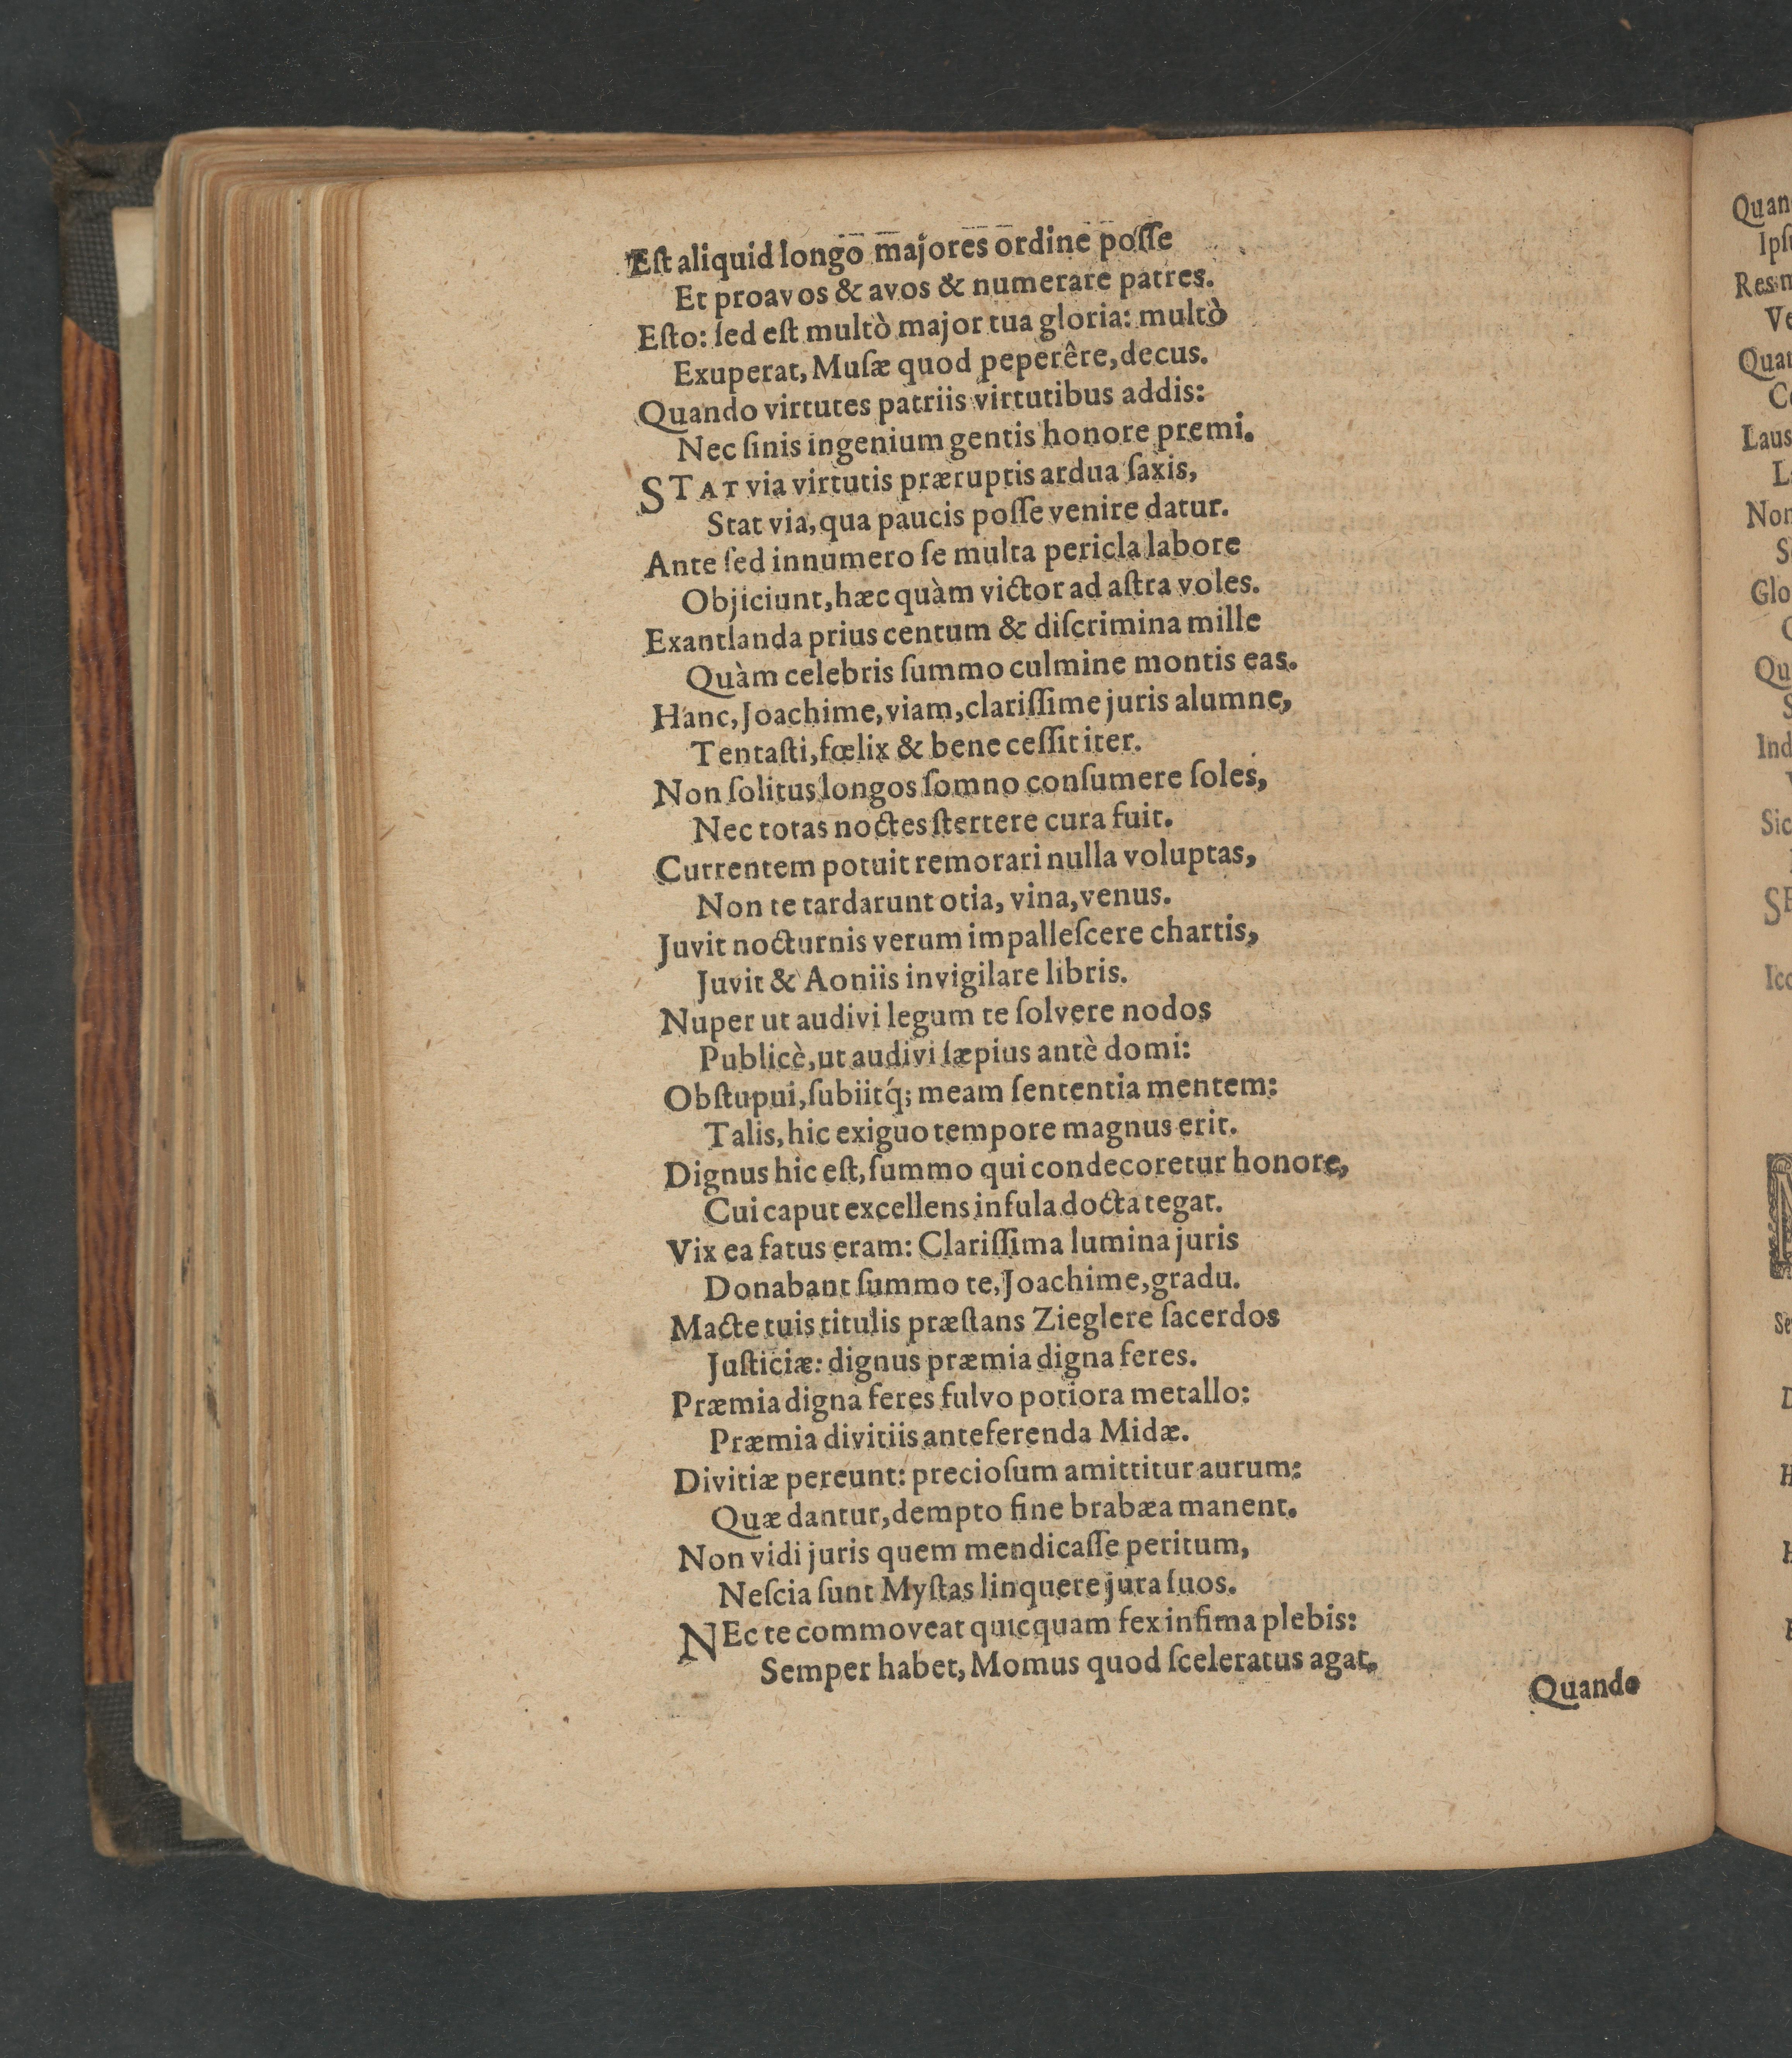 Eſt aliquid longo majores ordine poſſe
Et proavos & avos & numerare patres.
Eſto: ſed eſt multò major tua gloria: multò
Exuperat, Muſæ quod peperêre, decus.
Quando virtutes patriis virtutibus addis:
Nec ſinis ingenium gentis honore premi.
STAT via virtutis præruptis ardua ſaxis,
Stat via, qua paucis poſſe venire datur.
Ante ſed innumero ſe multa pericla labore
Objiciunt, hæc quàm victor ad aſtra voles.
Exantlanda prius centum & diſcrimina mille
Quàm celebris ſummo culmine montis eas.
Hanc, Joachime, viam, clariſſime juris alumne,
Tentaſti, fœlix & bene ceſſit iter.
Non ſolitus longos ſomno conſumere ſoles,
Nec totas noctes ſtertere cura fuit.
Currentem potuit remorari nulla voluptas,
Non te tardarunt otia, vina, venus.
Juvit nocturnis verum impalleſcere chartis,
Juvit & Aoniis invigilare libris.
Nuper ut audivi legum te ſolvere nodos
Publicè, ut audivi ſæpius antè domi:
Obſtupui, ſubiitq́; meam ſententia mentem:
Talis, hic exiguo tempore magnus erit.
Dignus hic eſt, ſummo qui condecoretur honore,
Cui caput excellens infula docta tegat.
Vix ea fatus eram: Clariſſima lumina juris
Donabant ſummo te, Joachime, gradu.
Macte tuis titulis præſtans Zieglere ſacerdos
Juſticiæ: dignus præmia digna feres.
Præmia digna feres fulvo potiora metallo:
Præmia divitiis anteferenda Midæ.
Divitiæ pereunt: precioſum amittitur aurum:
Quæ dantur, dempto fine brabæa manent.
Non vidi juris quem mendicaſſe peritum,
Neſcia ſunt Myſtas linquere jura ſuos.
NEc te commoveat quicquam fex infima plebis:
Semper habet, Momus quod ſceleratus agat,
Quando